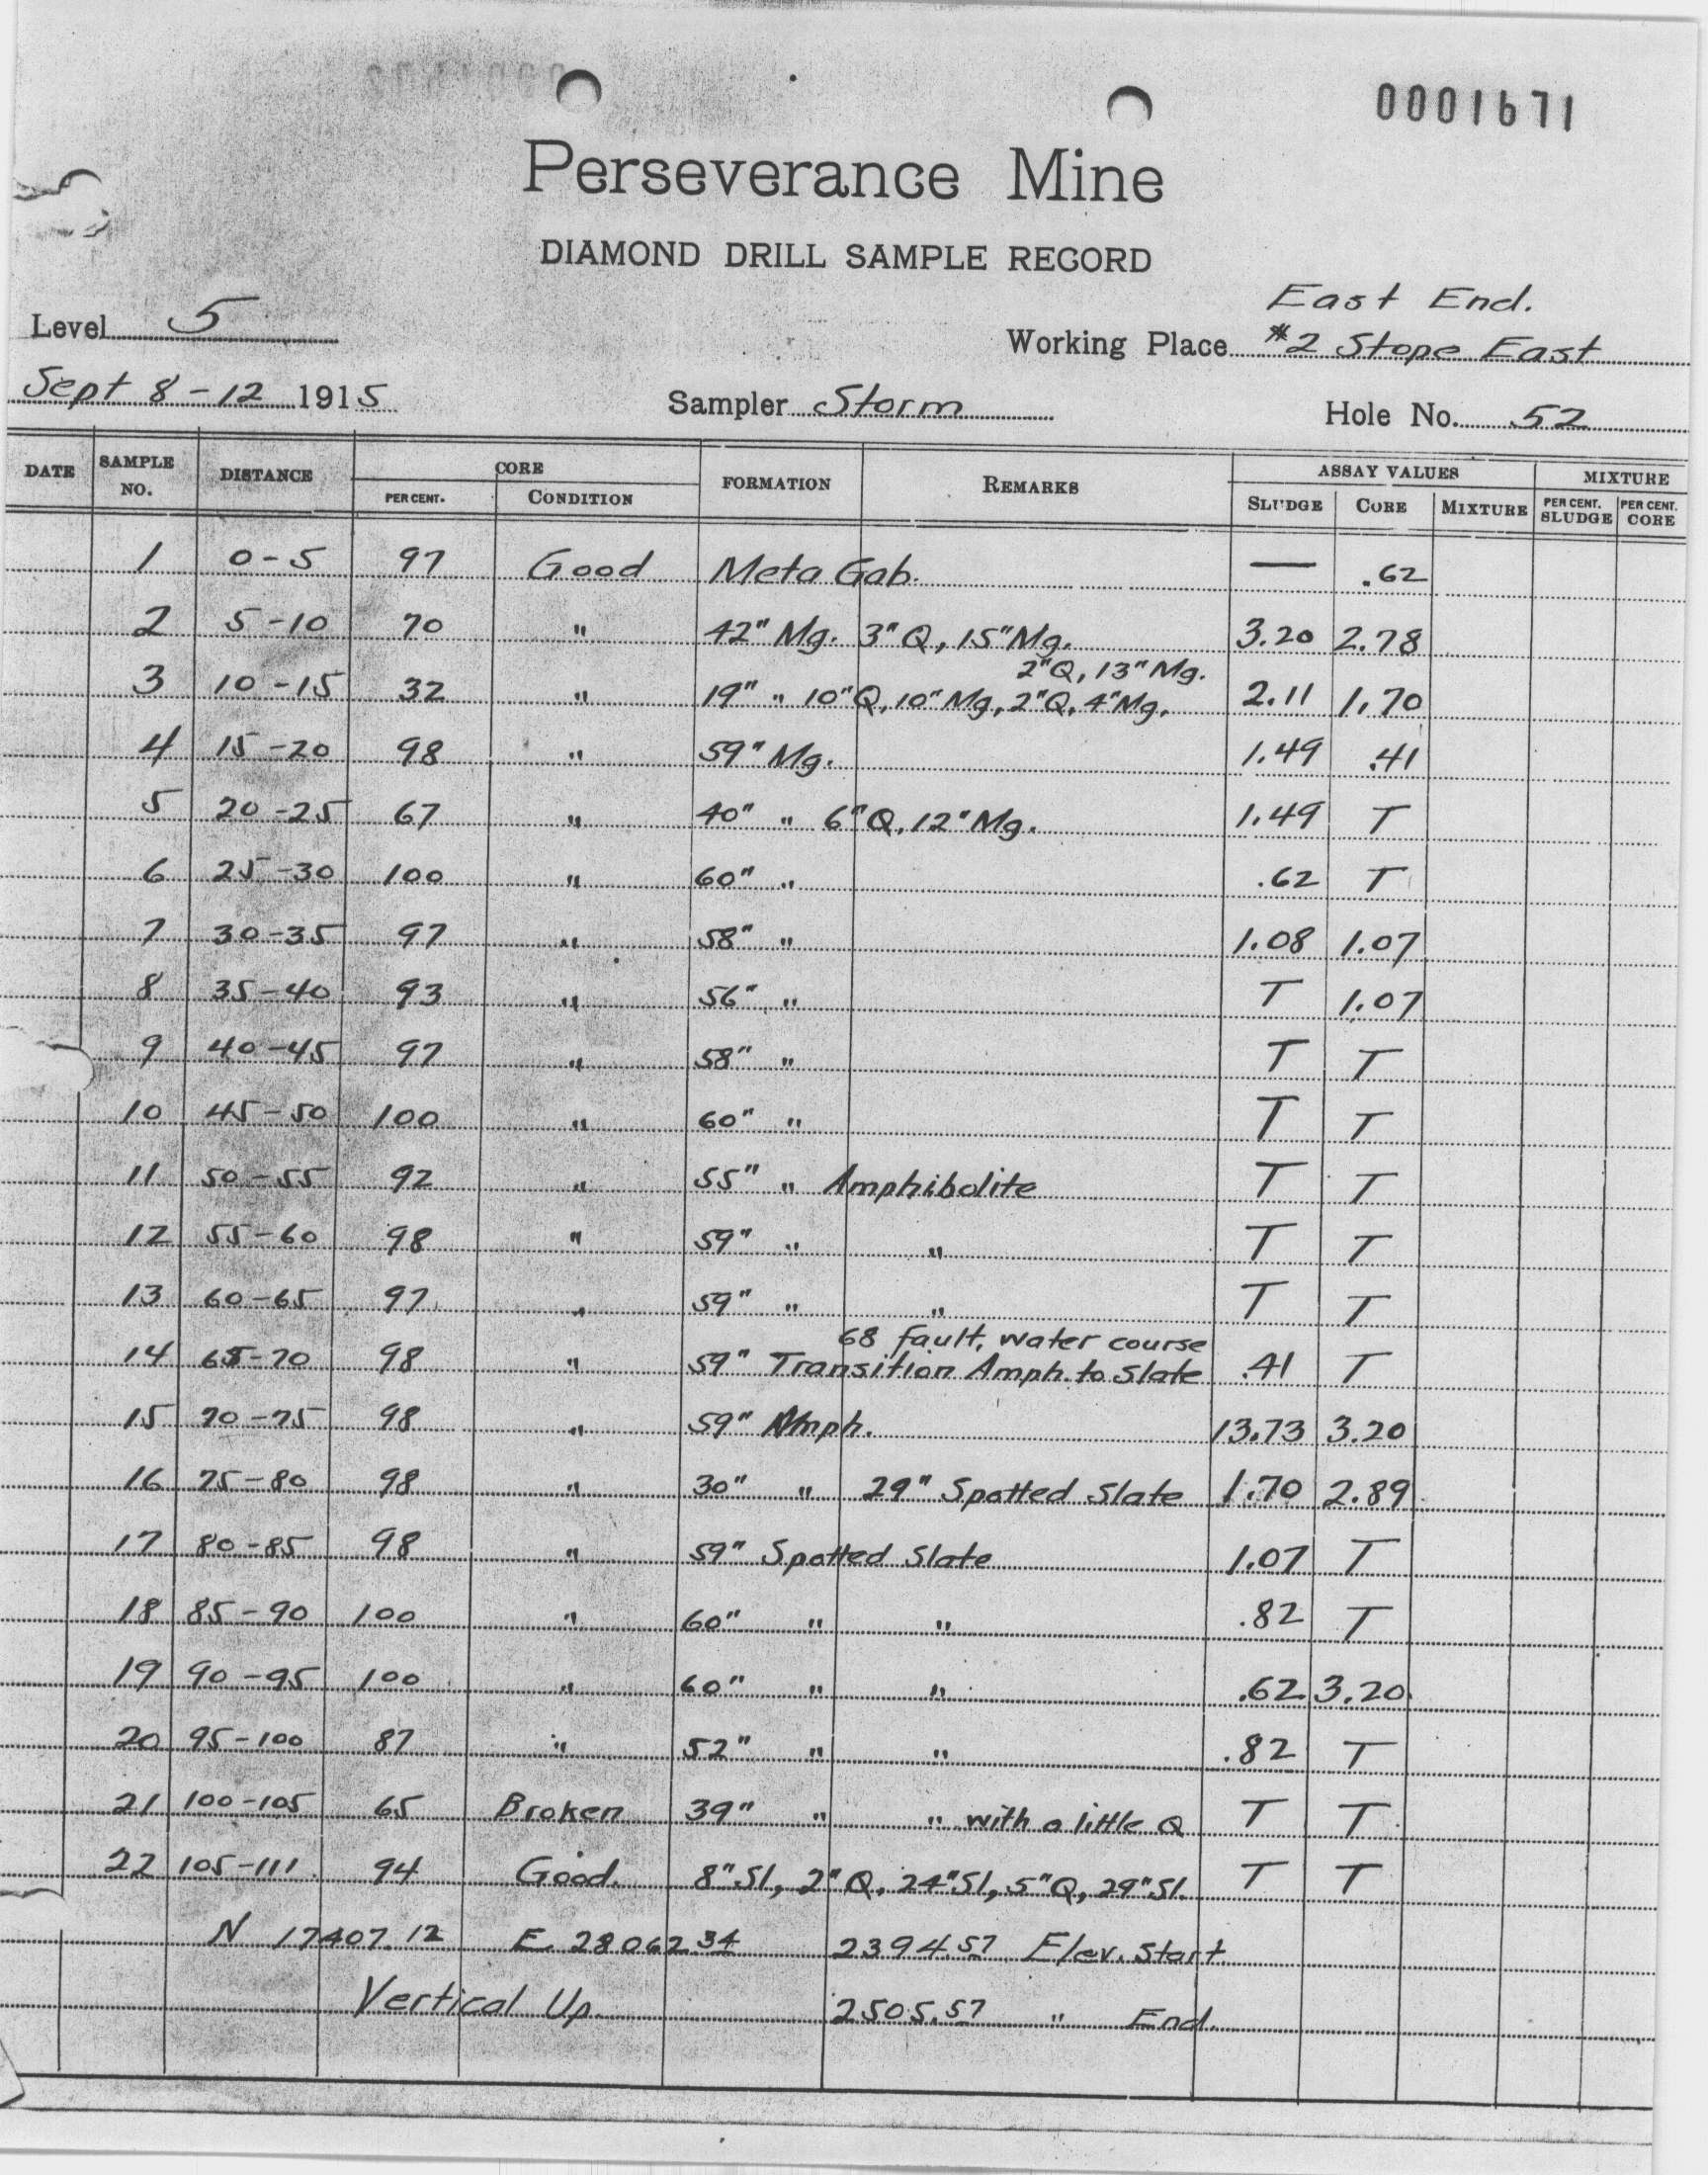 0001671
Perseverance Mine
DIAMOND DRILL SAMPLE RECORD
East End.
Level 5 Working Place #2 Stope East
Sept 8-12 1915 Sampler Storm Hole No. 52
DATE SAMPLE NO. DISTANCE CORE PER CENT. CONDITION FORMATION REMARKS ASSAY VALUES SLUDGE CORE MIXTURE MIXTURE PER CENT. SLUDGE PER CENT. CORE
1 0-5 97 Good Meta Gab. — .62
2 5-10 70 " 42" Mg. 3" Q, 15" Mg. 3.20 2.78
2"Q, 13" Mg.
3 10-15 32 " 19" " 10"Q, 10" Mg, 2"Q, 4"Mg. 2.11 1.70
4 15-20 98 " 59" Mg. 1.49 .41
5 20-25 67 " 40" " 6"Q, 12" Mg. 1.49 T
6 25-30 100 " 60" " .62 T
7 30-35 97 " 58" " 1.08 1.07
8 35-40 93 " 56" " T 1.07
9 40-45 97 " 58" " T T
10 45-50 100 " 60" " T T
11 50-55 92 " 55" " Amphibolite T T
12 55-60 98 " 59" " " T T
13 60-65 97 " 59" " " T T
68 fault, water course
14 65-70 98 " 59" Transition Amph. to Slate .41 T
15 70-75 98 " 59" Amph. 13.73 3.20
16 75-80 98 " 30" " 29" Spotted Slate 1.70 2.89
17 80-85 98 " 59" Spotted Slate 1.07 T
18 85-90 100 " 60" " " .82 T
19 90-95 100 " 60" " " .62 3.20
20 95-100 87 " 52" " " .82 T
21 100-105 65 Broken 39" " " with a little Q T T
22 105-111 94 Good. 8" Sl, 2" Q, 24" Sl, 5" Q, 29" Sl. T T
N 17407.12 E 28062 34 2394.57 Elev. Start.
Vertical Up 2505.57 " End.